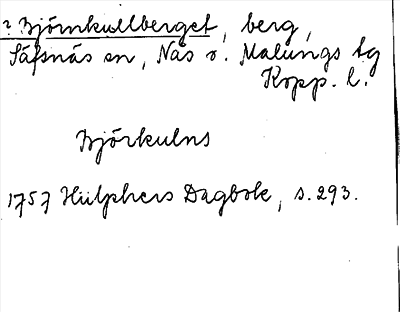 ? Björnkullberget, berg,
Säfsnäs sn, Nås o. Malungs tg
Kopp. l.
Björkulns
1757 Hülphers Dagbok, s. 293.